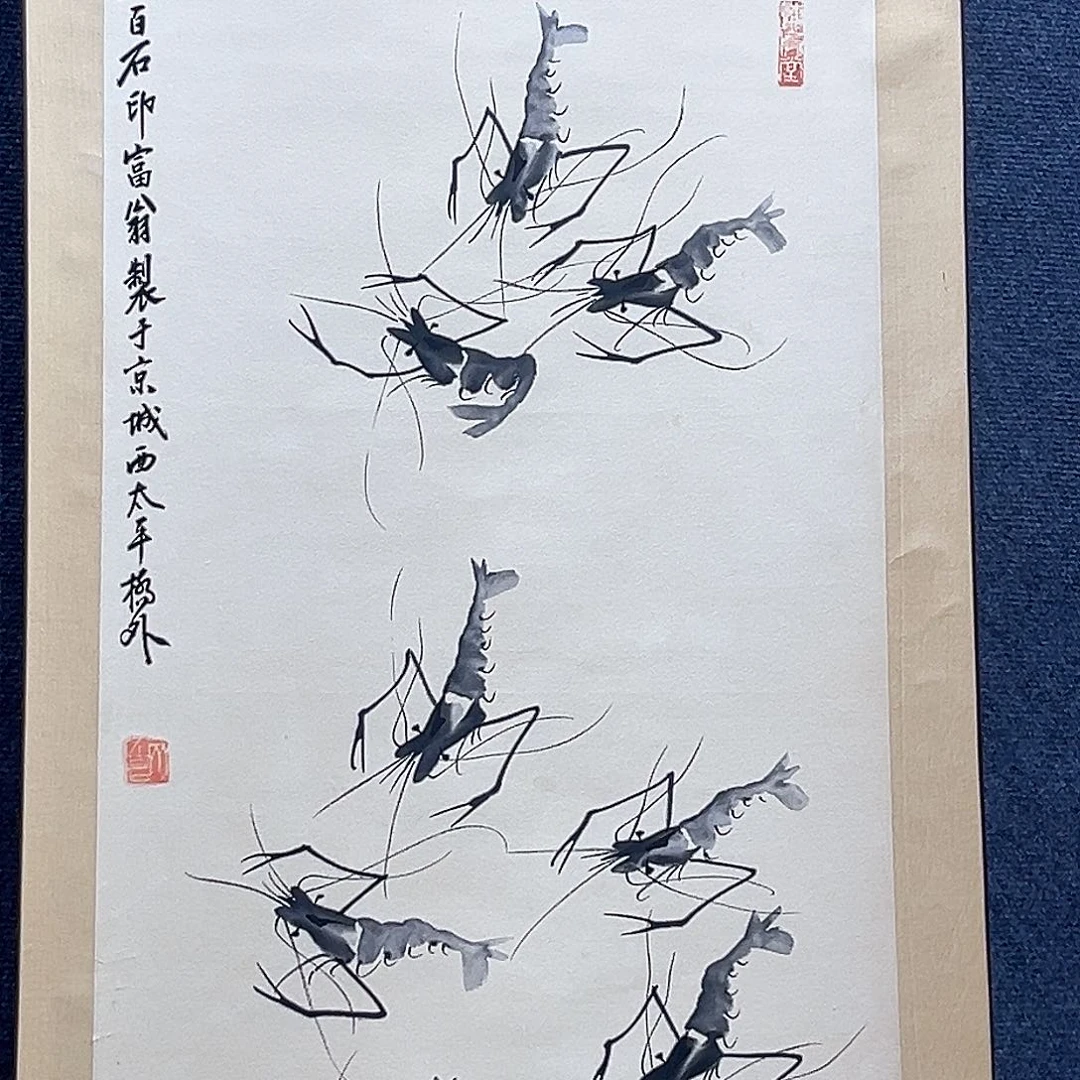 百石印富翁製于京城西太平橋外